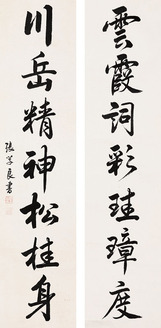 雲霞詞彩珪璋度
川岳精神松桂身
張學良書